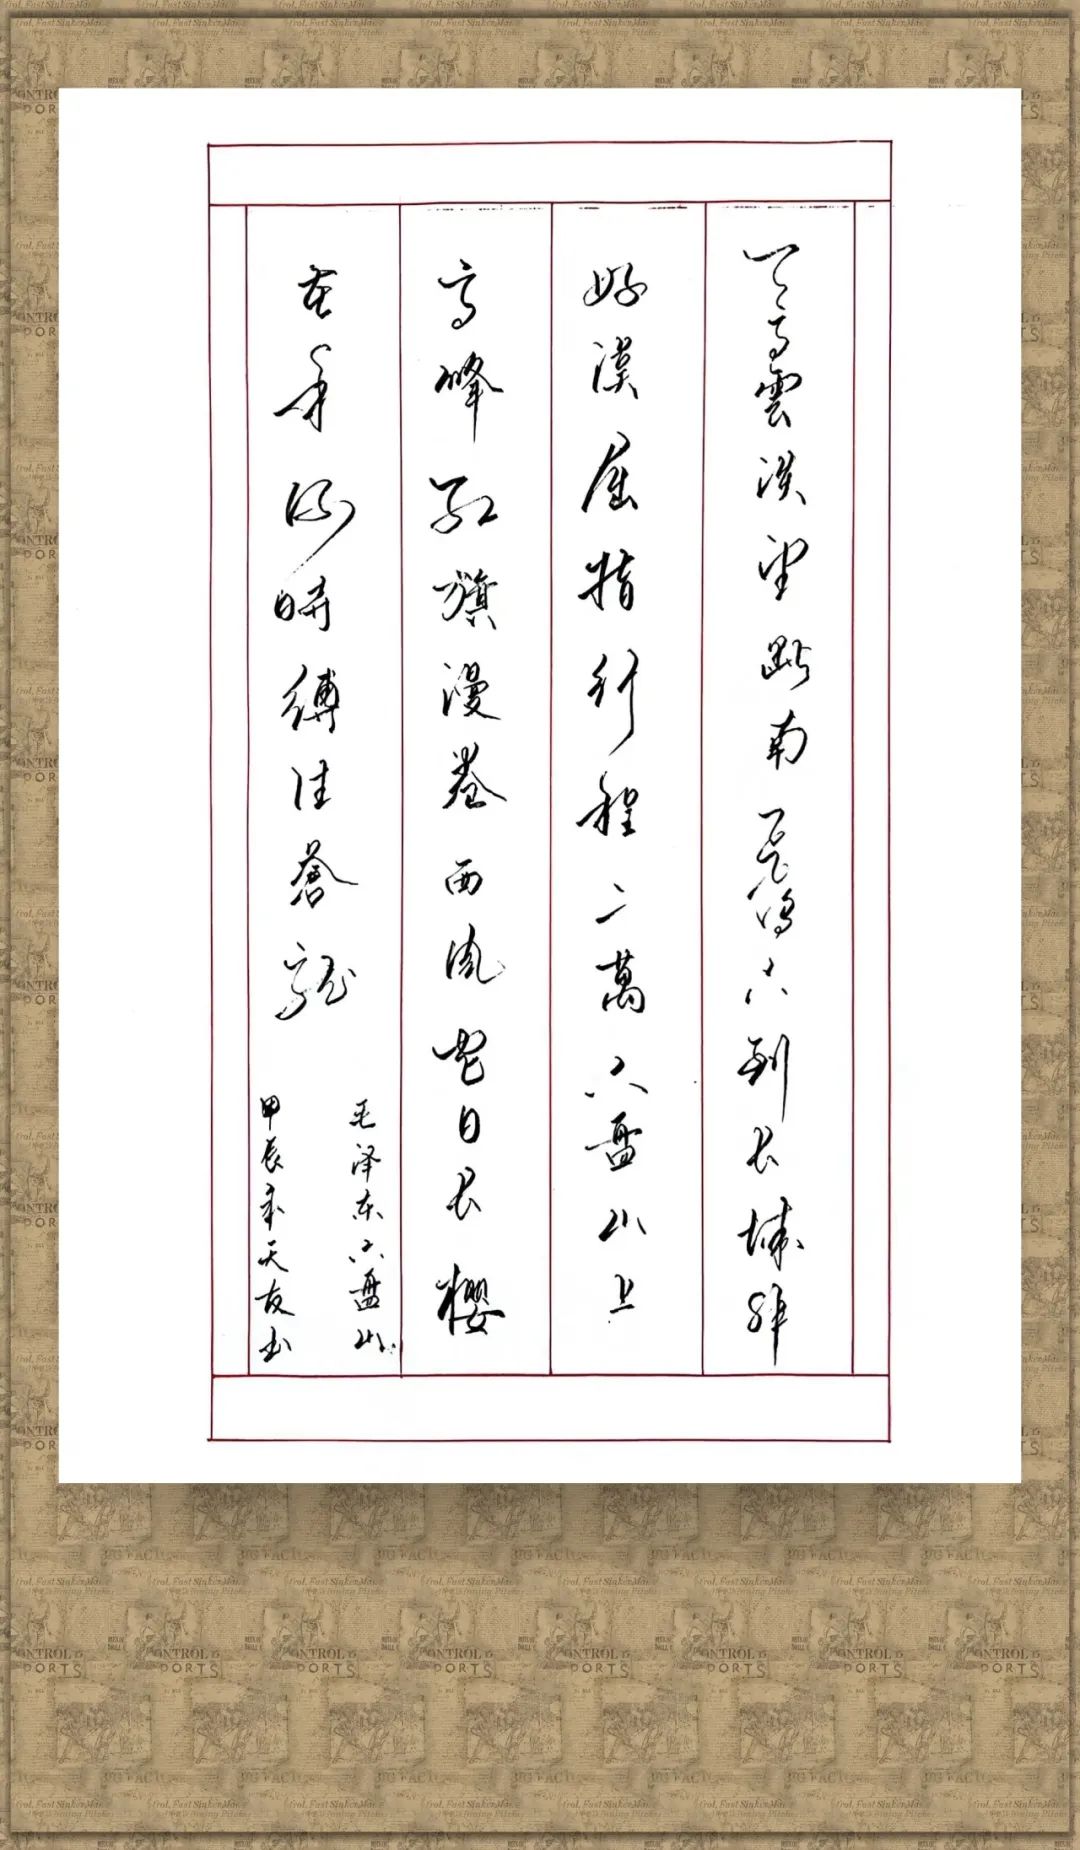 天高雲淡望斷南飛不到長城非
好漢屈指行程二萬六盤山上
高峰紅旗漫卷西風日長櫻
在手何時縛住蒼龍
毛泽东六盘山
甲辰年天友书